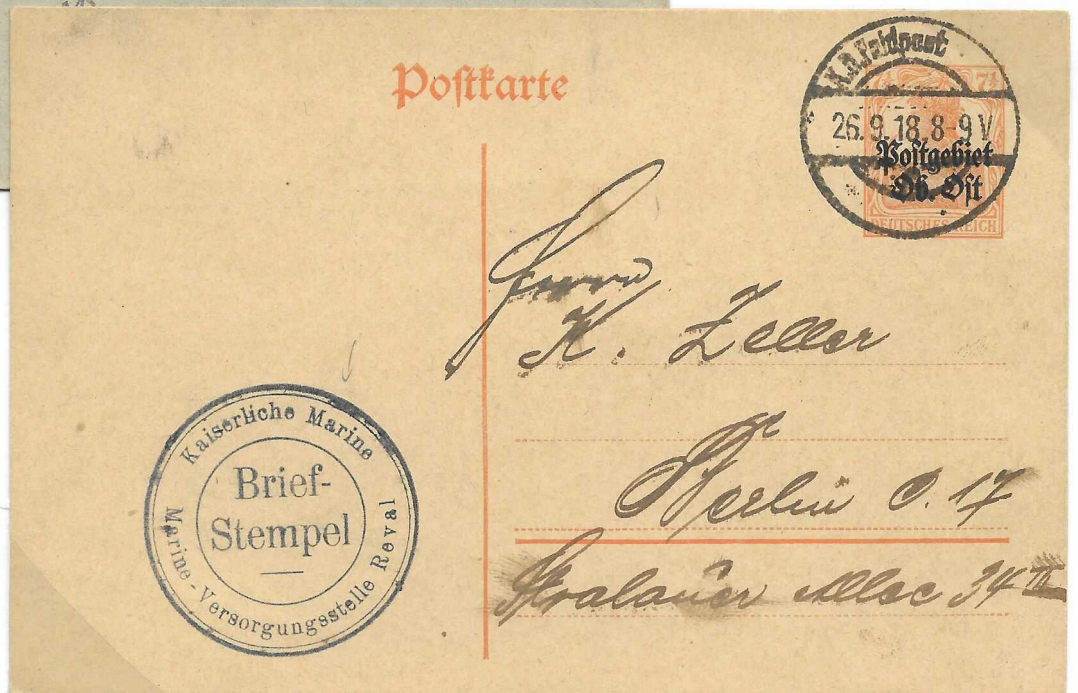 Postkarte
K.D. Feldpost
26.9.18.8-9V
7½ 7½
Postgebiet
Ob. Ost
DEUTSCHES REICH
Herrn
K. Zeller
Berlin O. 17
Stralauer Allee 34 III
Kaiserliche Marine
Brief-
Stempel
Marine-Versorgungsstelle Reval